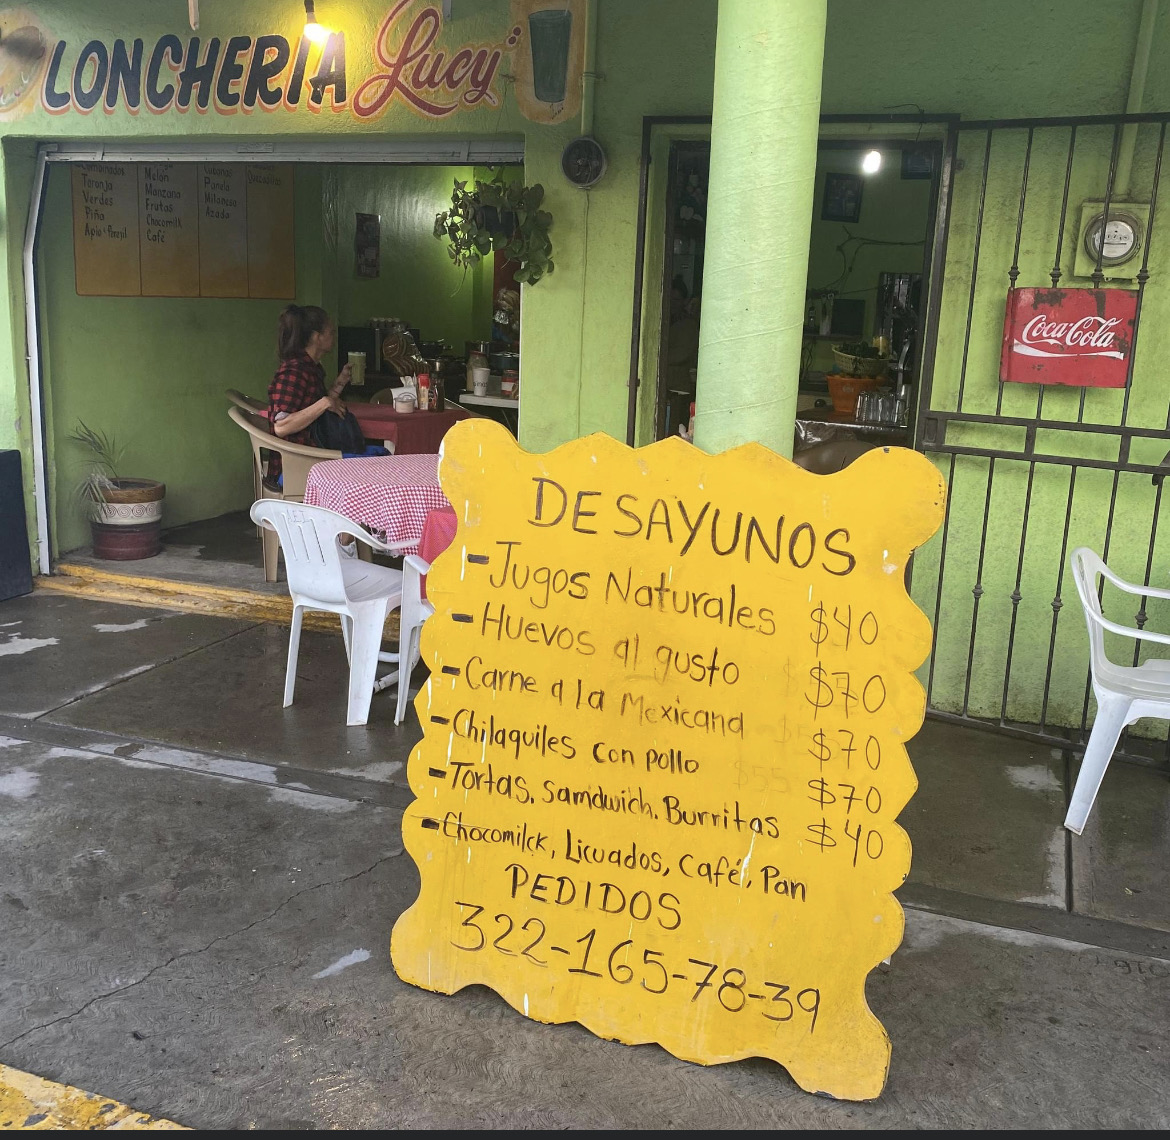 LONCHERIA Lucy
Toronja
Verdes
Piña
Apio y Perejil
Melón
Manzana
Frutas
Chocomilk
Café
Cubanas
Panela
Milanesa
Asada
Quesadillas
Coca-Cola
DESAYUNOS
-Jugos Naturales $40
-Huevos al gusto $70
-Carne a la Mexicana $70
-Chilaquiles con pollo $70
-Tortas, Samdwich, Burritas $40
-Chocomilck, Licuados, Café, Pan
PEDIDOS
322-165-78-39